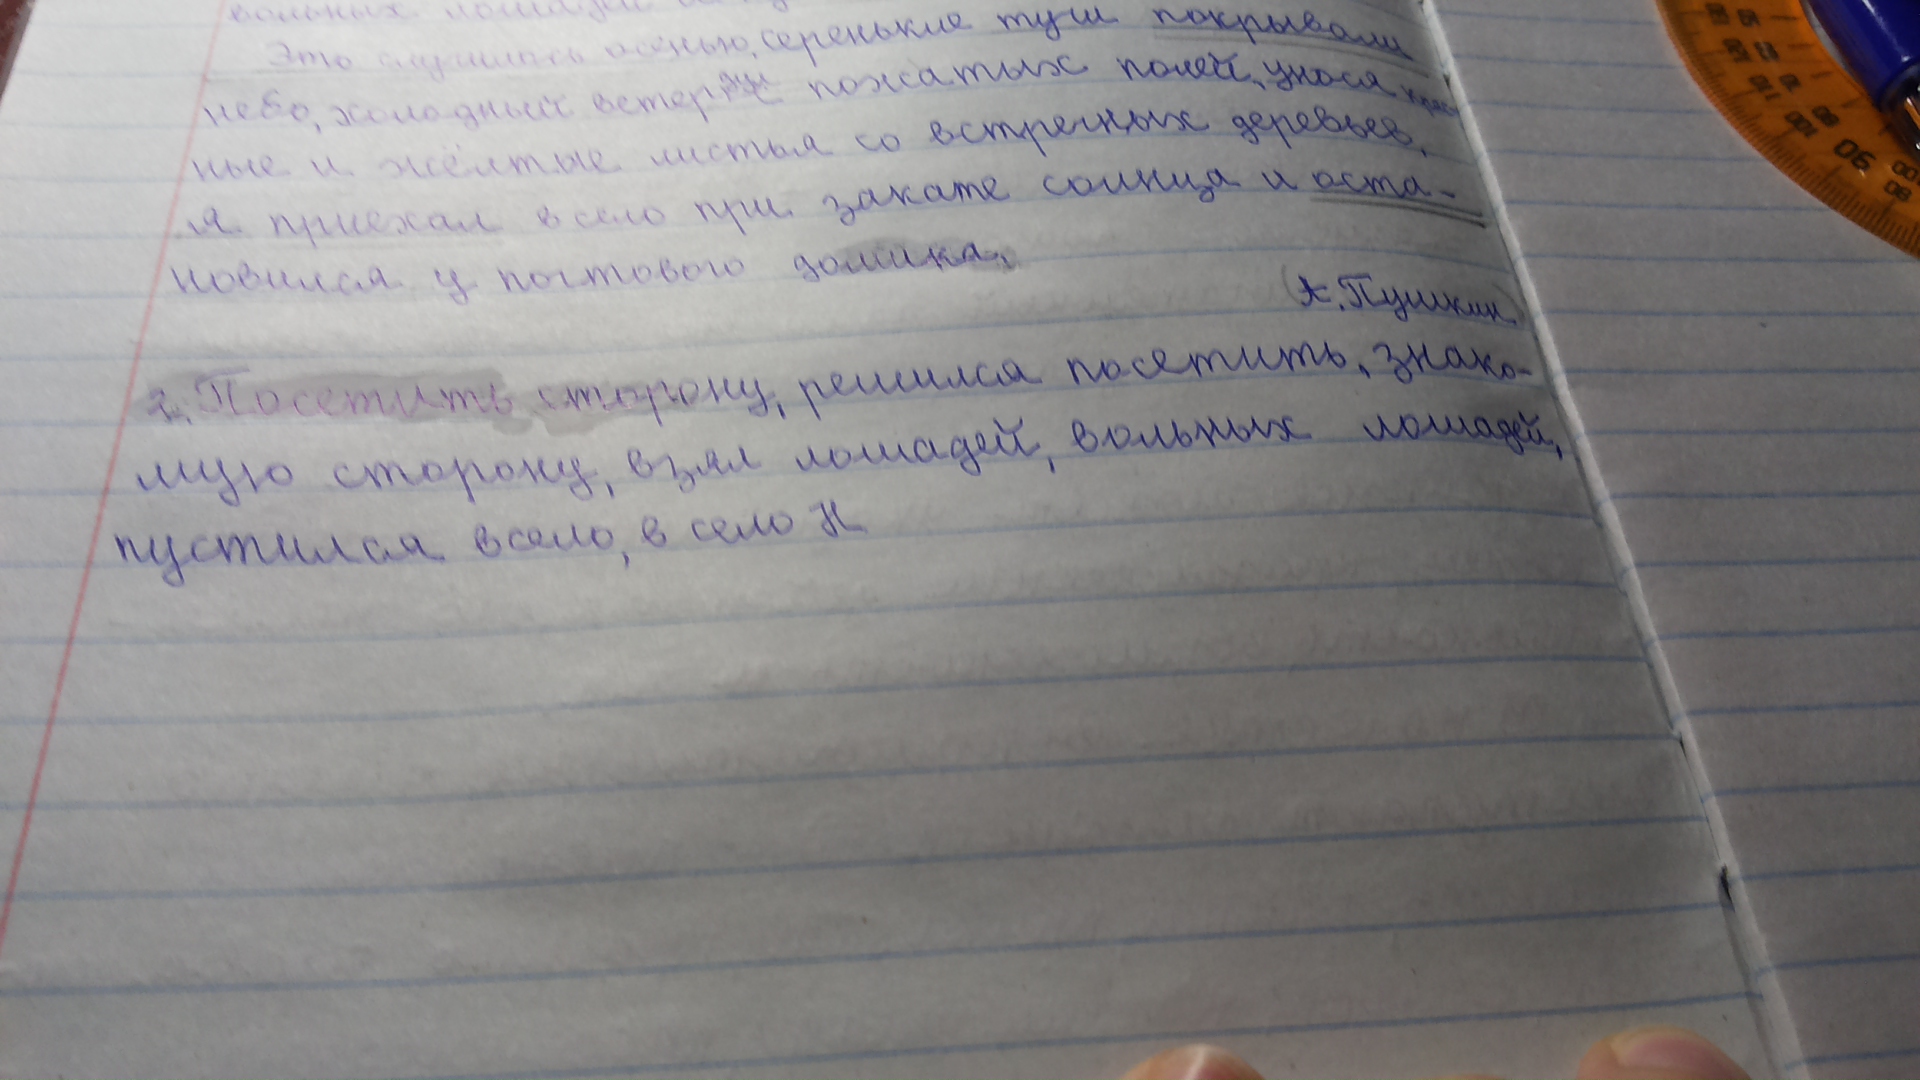 вольных лошадей
Это случилось осенью, серенькие тучи покрывали
небо, холодный ветер дул с пожатых полей, унося крас
ные и жёлтые листья со встречных деревьев.
Я приехал в село при закате солнца и оста-
новился у почтового домика.
(А. Пушкин)
2. Посетить сторону, решился посетить, знако-
мую сторону, взял лошадей, вольных лошадей,
пустился в село, в село Н
90
100
80
100
110